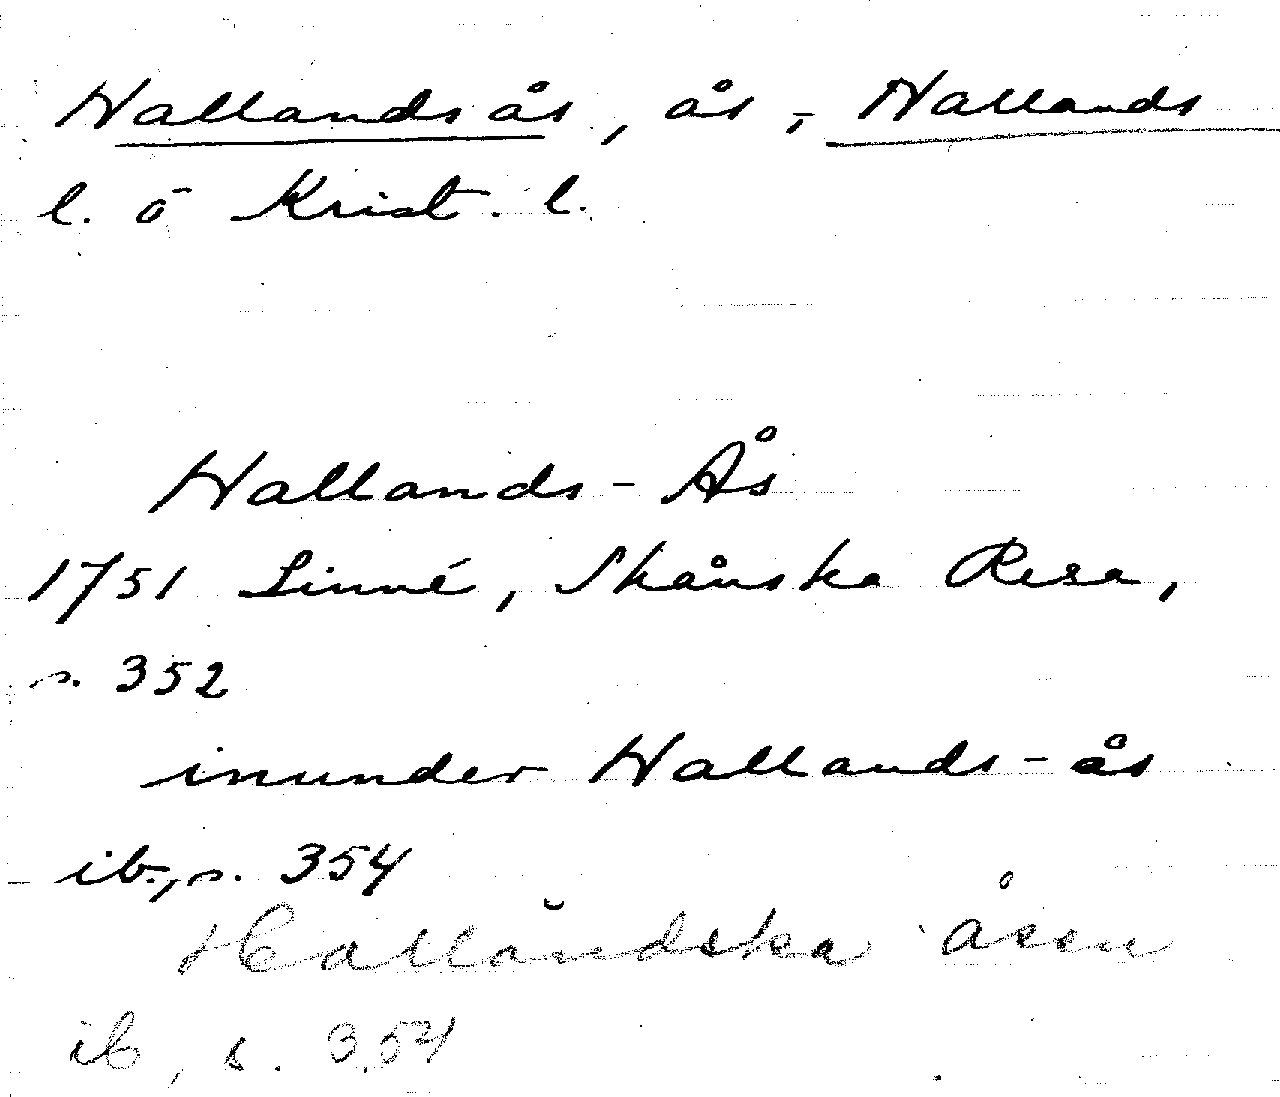 Hallandsås, ås, Hallands
l. o Krist. l.
Hallands-Ås
1751 Linné, Skånska Resa,
s. 352
inunder Hallands-ås
ib., s. 354
Halländska åsen
ib, s. 354